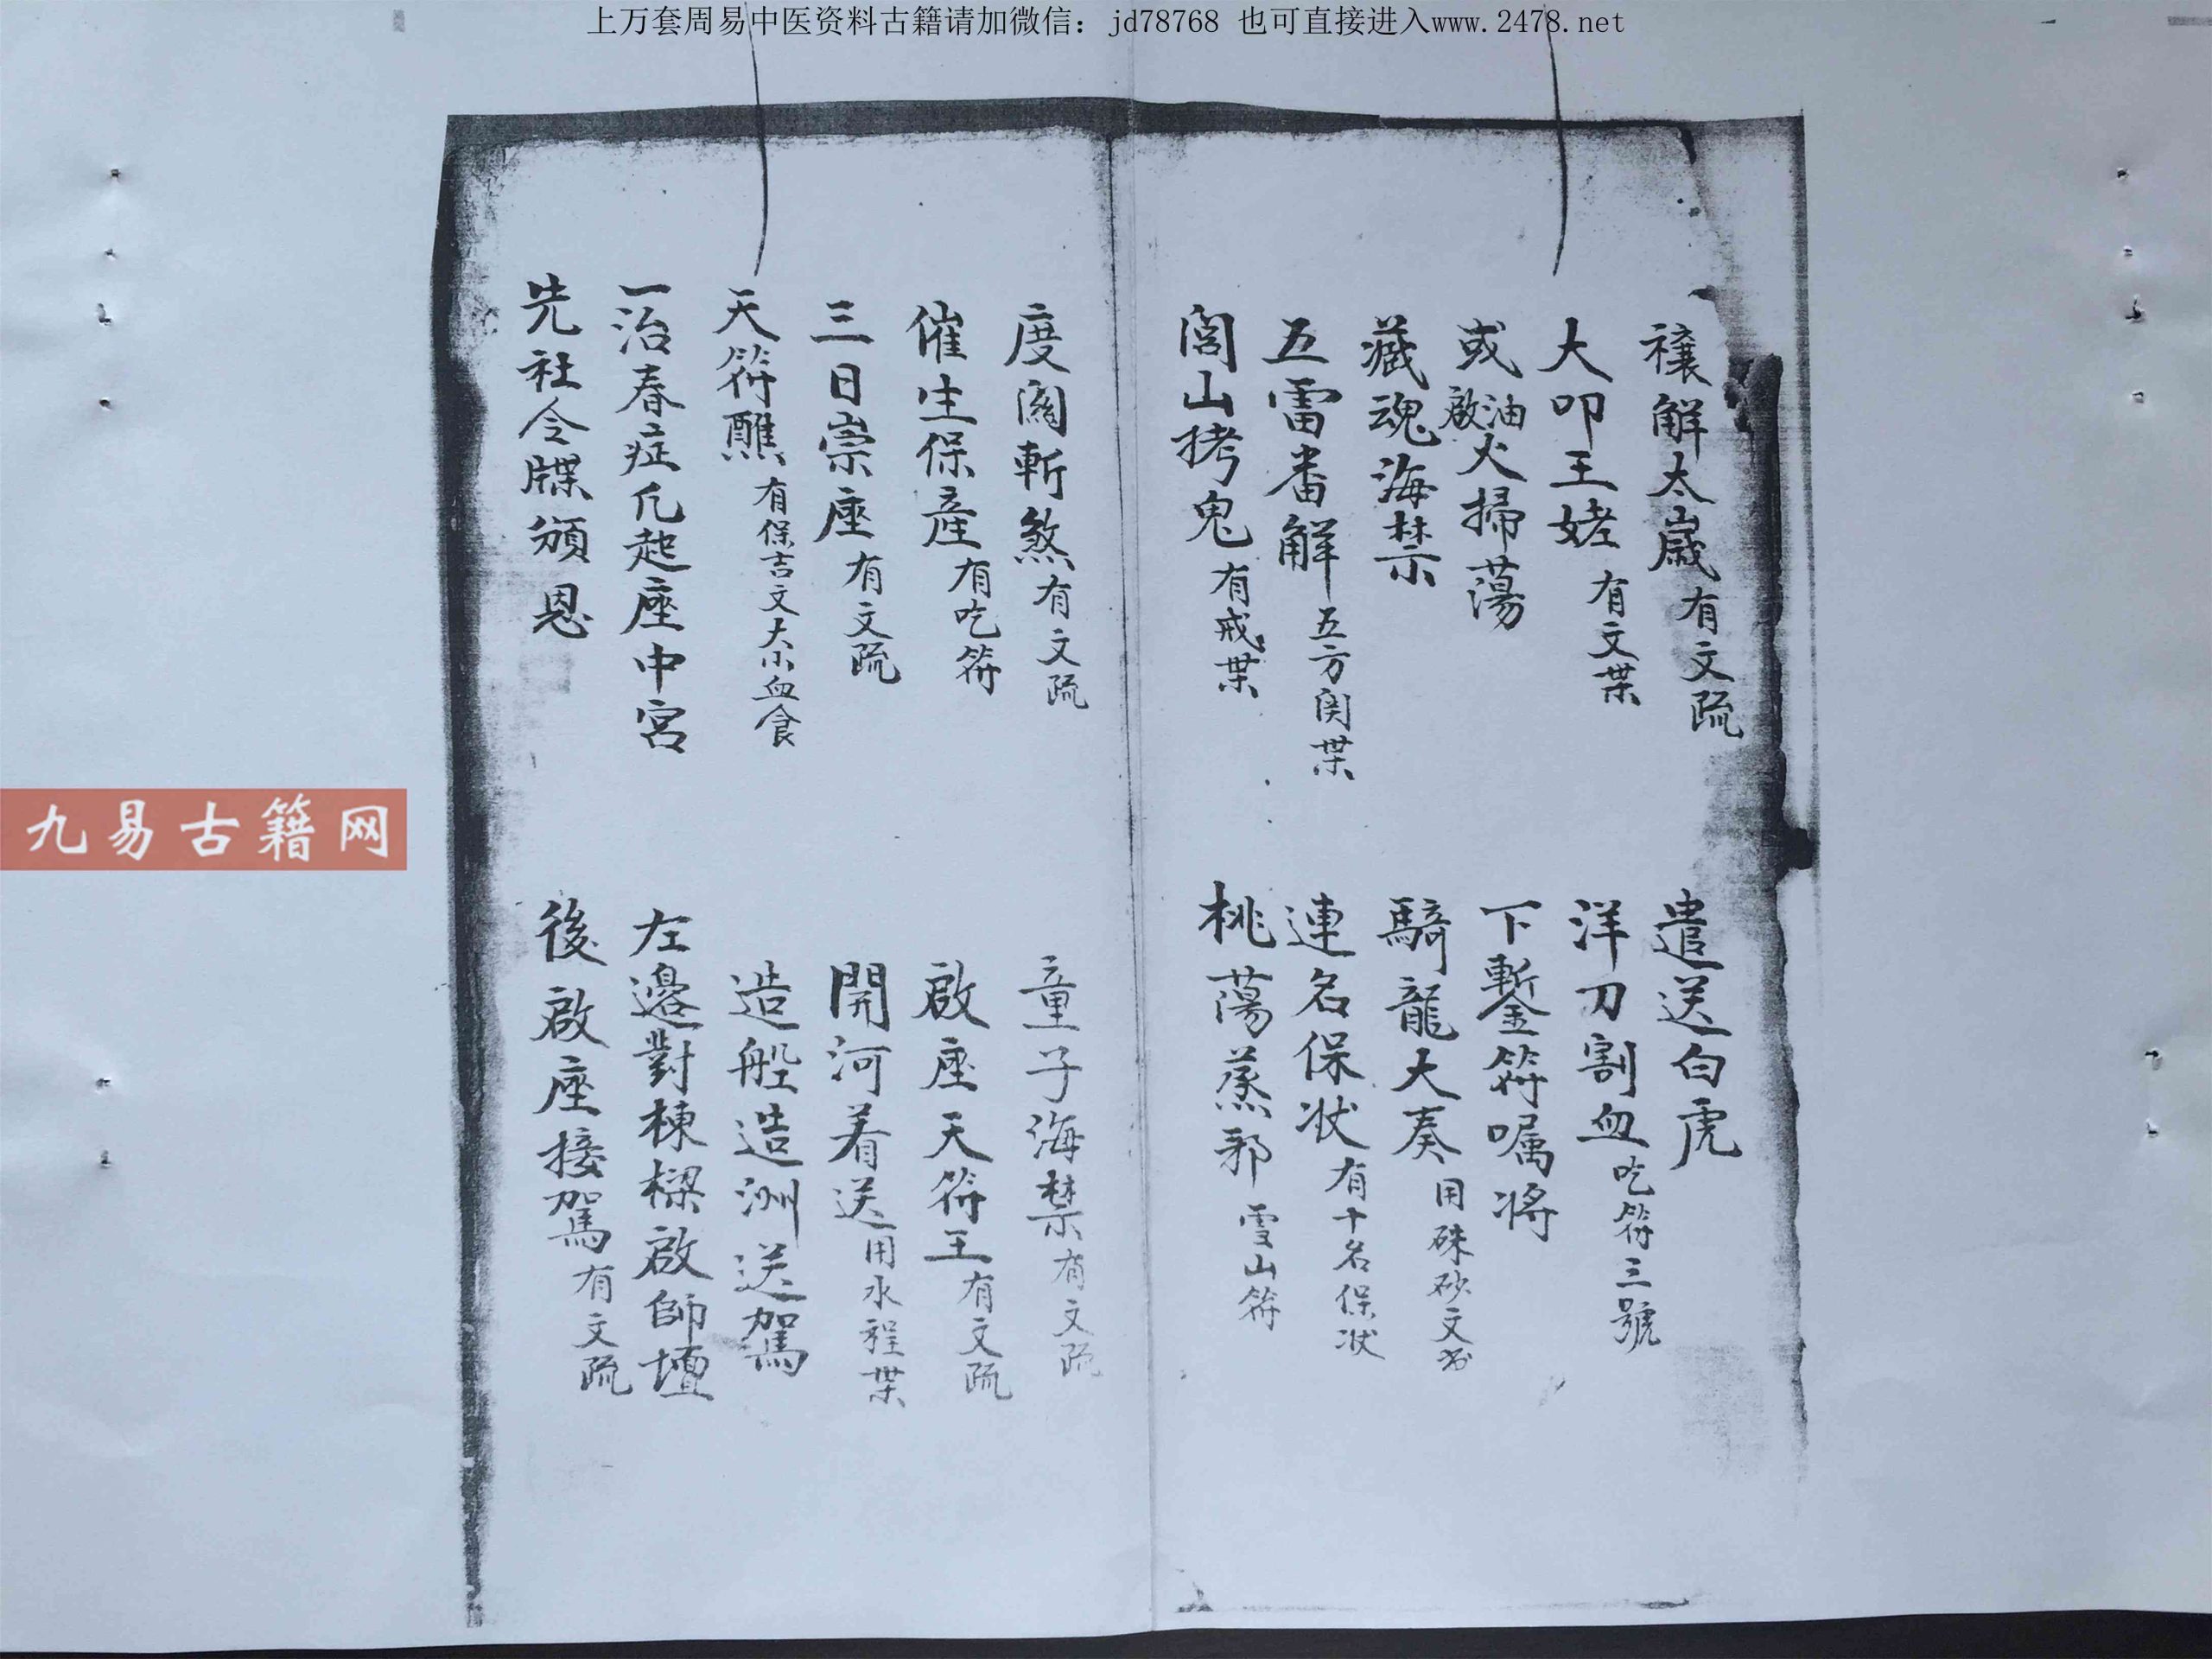 上万套周易中医资料古籍请加微信：jd78768 也可直接进入www.2478.net
禳解太歲有文疏
遣送白虎
大叩王姥有文業
洋刀割血吃符三號
或啟油火掃蕩
下鏨符嘱将
藏魂海禁
騎龍大奏用硃砂文书
五雷番解五方関業
連名保状有十名保状
閭山拷鬼有戒業
桃蕩蒸邪雪山符
度関斬煞有文疏
童子海禁有文疏
催生保産有吃符
啟座天符王有文疏
三日崇座有文疏
開河着送用水程業
天符醮有保吉文大小血食
造船造洲送駕
一治春症凡起座中宮
左邊對棟樑啟師壇
先社令牒頒恩
後啟座接駕有文疏
九易古籍网